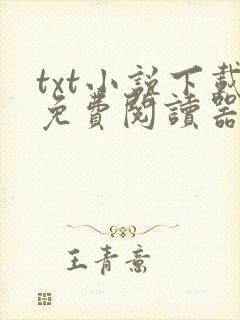 txt小説下載
免費閱讀器
王青意